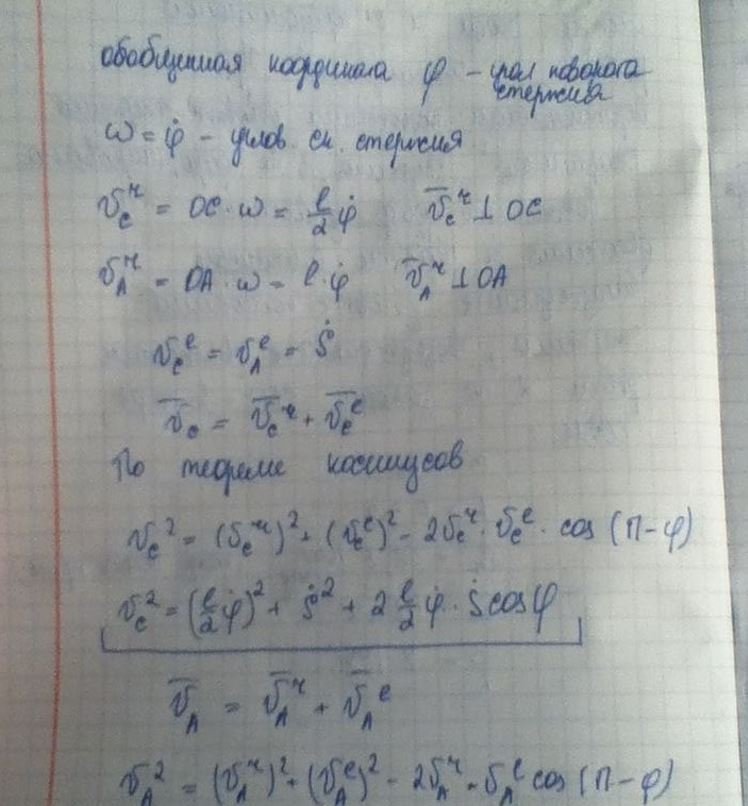 обобщенная координата φ – угол поворота
стержня
ω = φ̇ – углов. ск. стержня
v_c^r = OC·ω = l/2 φ̇   v̄_c^r ⊥ OC
v_A^r = OA·ω = l·φ̇   v̄_A^r ⊥ OA
v_c^e = v_A^e = ṡ
v̄_c = v̄_c^r + v̄_c^e
По теореме косинусов
v_c² = (v_c^r)² + (v_c^e)² - 2v_c^r · v_c^e · cos (π-φ)
v_c² = (l/2 φ̇)² + ṡ² + 2 l/2 φ̇ · ṡ cosφ
v̄_A = v̄_A^r + v̄_A^e
v_A² = (v_A^r)² + (v_A^e)² - 2v_A^r · v_A^e cos (π-φ)